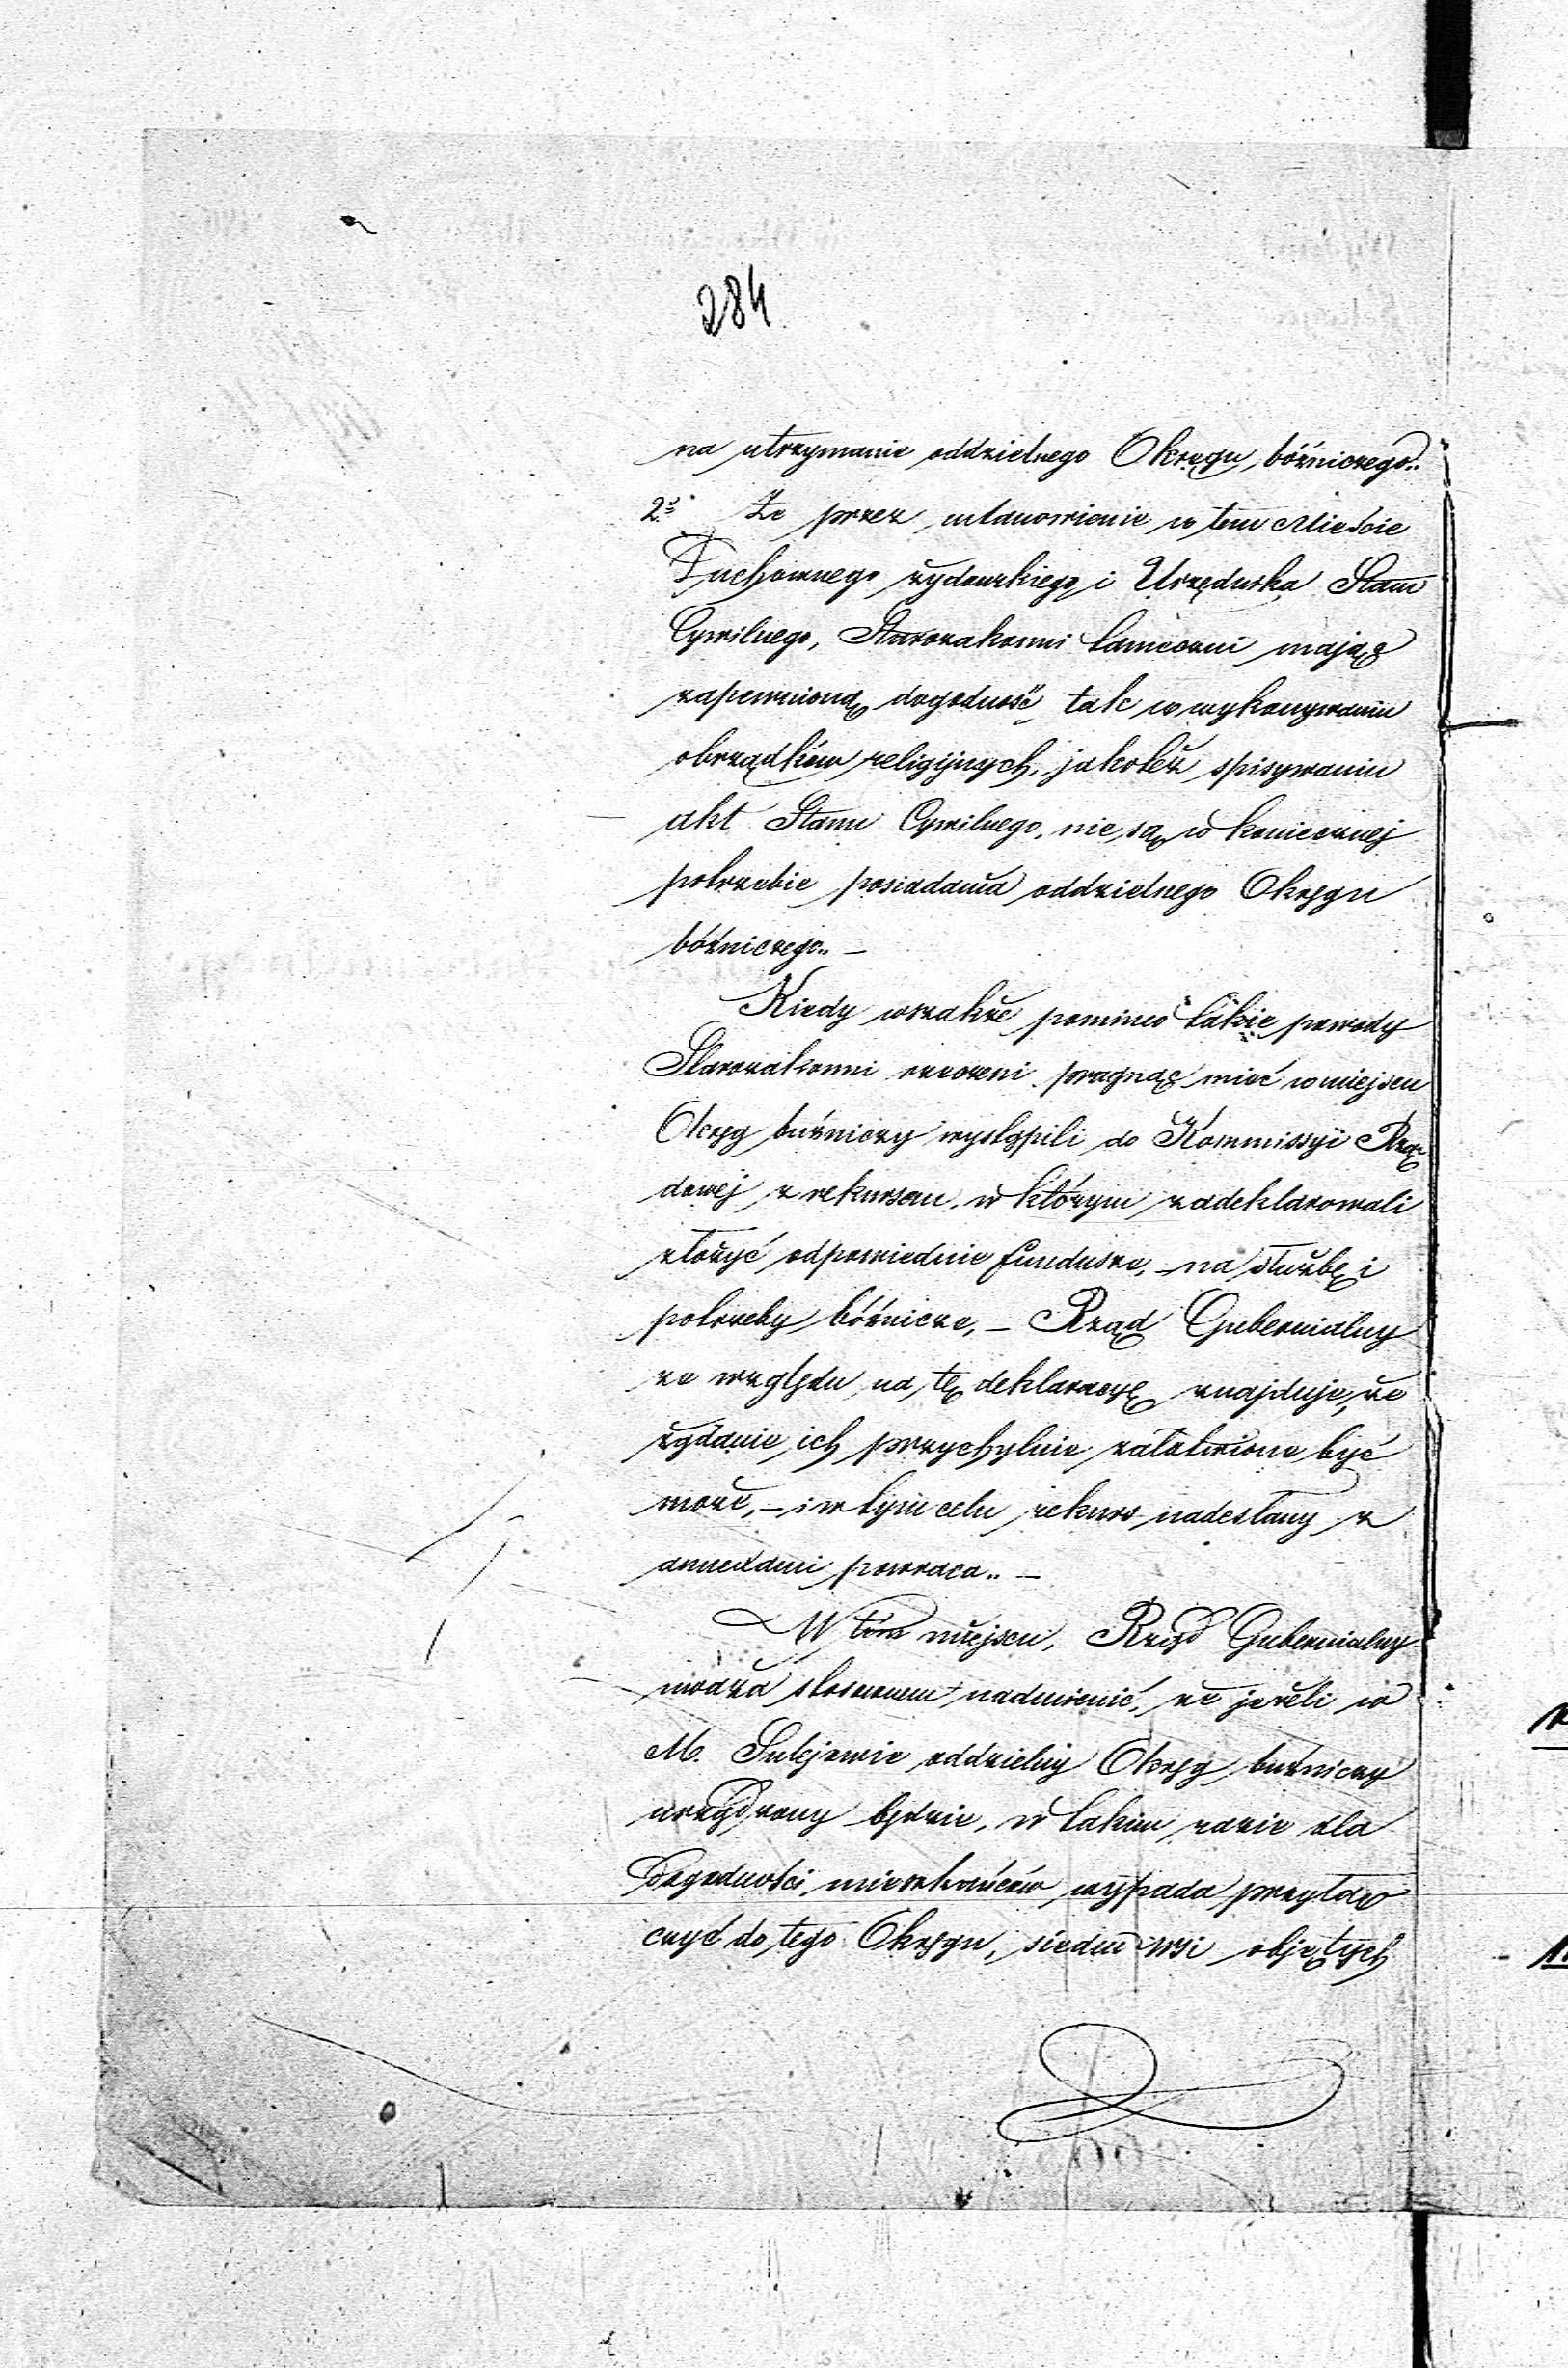 284
na utrzymanie oddzielnego Okręgu bóżniczego.
2º Że przez ustanowienie w tem Mieście
Duchownego żydowskiego i Urzędnika Stanu
Cywilnego, Starozakonni tameczni mając
zapewnioną dogodność tak w wykonywaniu
obrządków religijnych, jakoteż spisywaniu
akt Stanu Cywilnego, nie są w koniecznej
potrzebie posiadania oddzielnego Okręgu
bóżniczego. —
Kiedy wszakże pomimo takie powody
Starozakonni rzeczeni pragnąc mieć w miejscu
Okręg bużniczy wystąpili do Kommissyi Rzą-
dowej z rekursem, w którym zadeklarowali
złożyć odpowiednie fundusze, — na służbę i
potrzeby bóżnicze, — Rząd Gubernialny
ze względu na tę deklaracyę znajduje, że
żądanie ich przychylnie załatwione być
może, — i w tym celu rekurs nadesłany z
annexami powraca. —
W tém miejscu, Rząd Gubernialny
uważa stosownem nadmienić, że jeżeli w
M. Sulejowie oddzielny Okręg bużniczy
urządzony będzie, w takim razie dla
dogodności mieszkańców wypada przyłą-
czyć do tego Okręgu, siedm wsi objętych